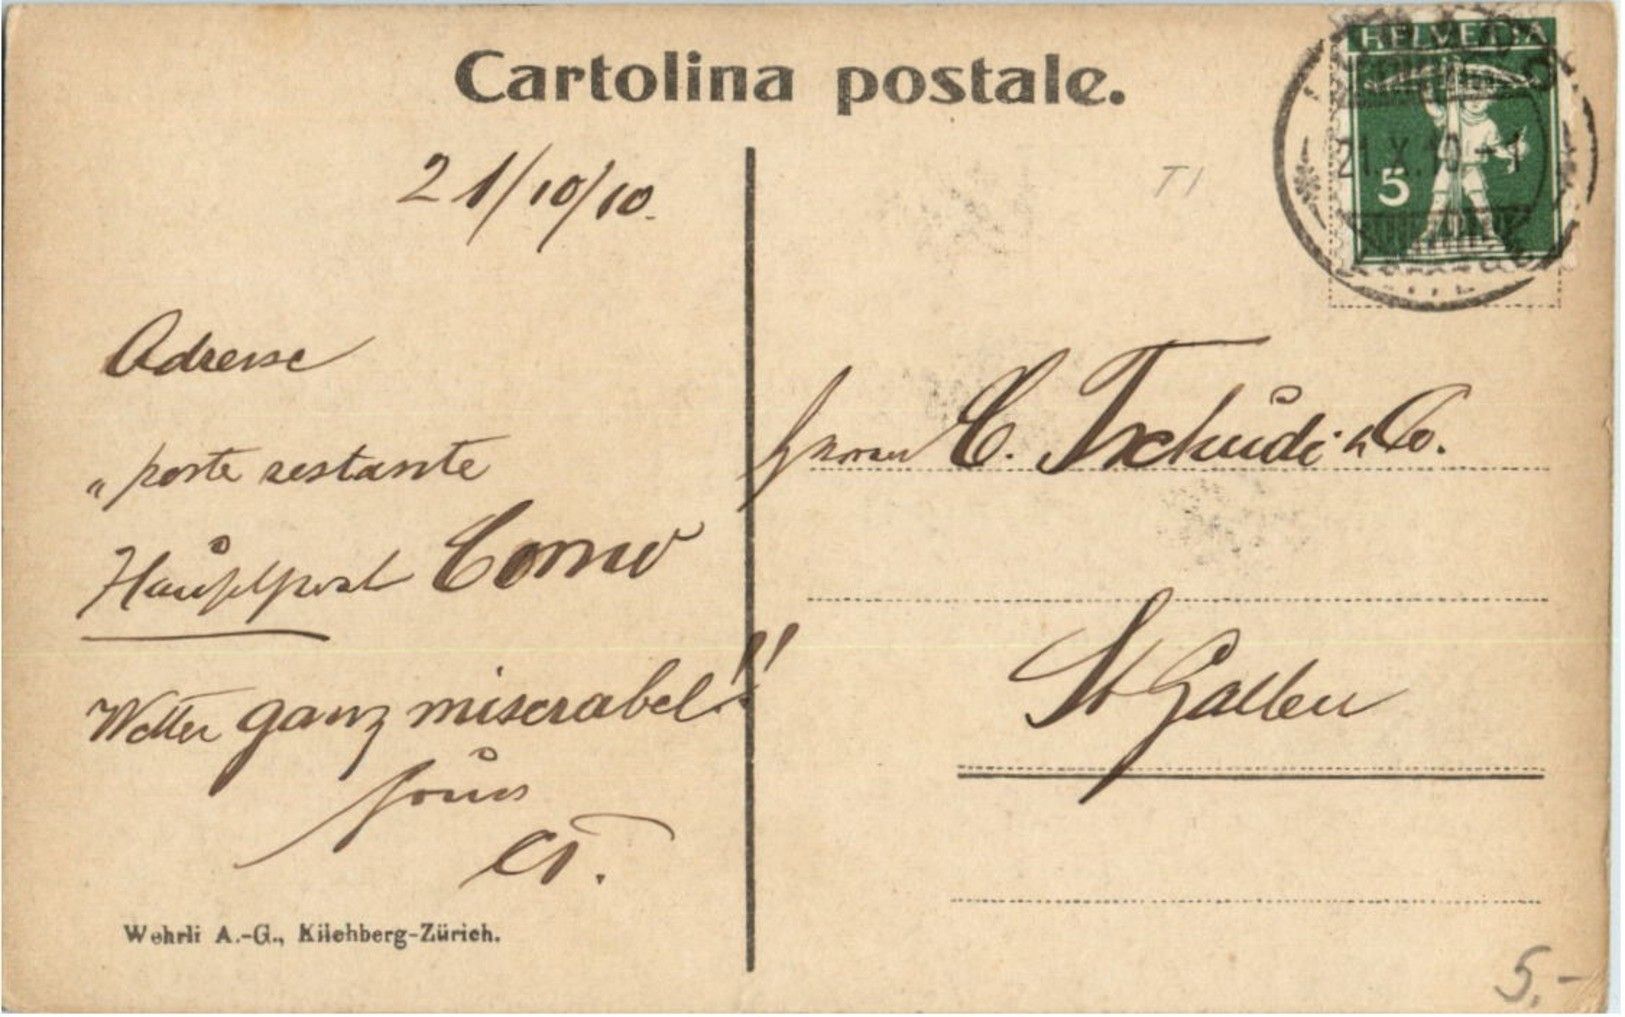 Cartolina postale.
HELVETIA
21.X.10
5
T1
21/10/10.
Adresse
„ poste restante
Hauptpost Como
Wetter ganz miserabel!!
CT.
Wehrli A.-G., Kilchberg-Zürich.
Herren C. Tschudi & Co.
St Gallen
5.-